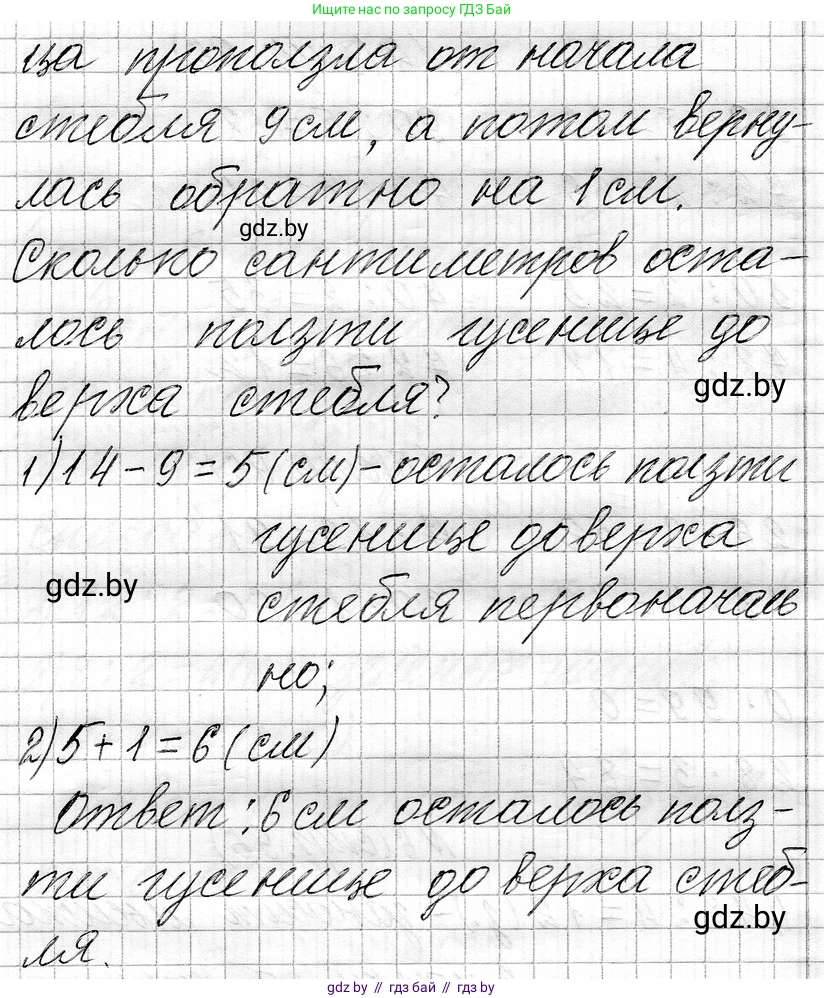 Ищите нас по запросу ГДЗ Бай
ца проползла от начала
стебля 9 см, а потом верну-
лась обратно на 1 см.
gdz.by
Сколько сантиметров оста-
лось ползти гусенице до
gdz.by
верха стебля?
1) 14 - 9 = 5 (см) - осталось ползти
гусенице до верха
gdz.by
стебля первоначаль
но;
2) 5 + 1 = 6 (см)
Ответ: 6 см осталось полз-
ти гусенице до верха стеб-
gdz.by
ля.
gdz.by // гдз бай // гдз by